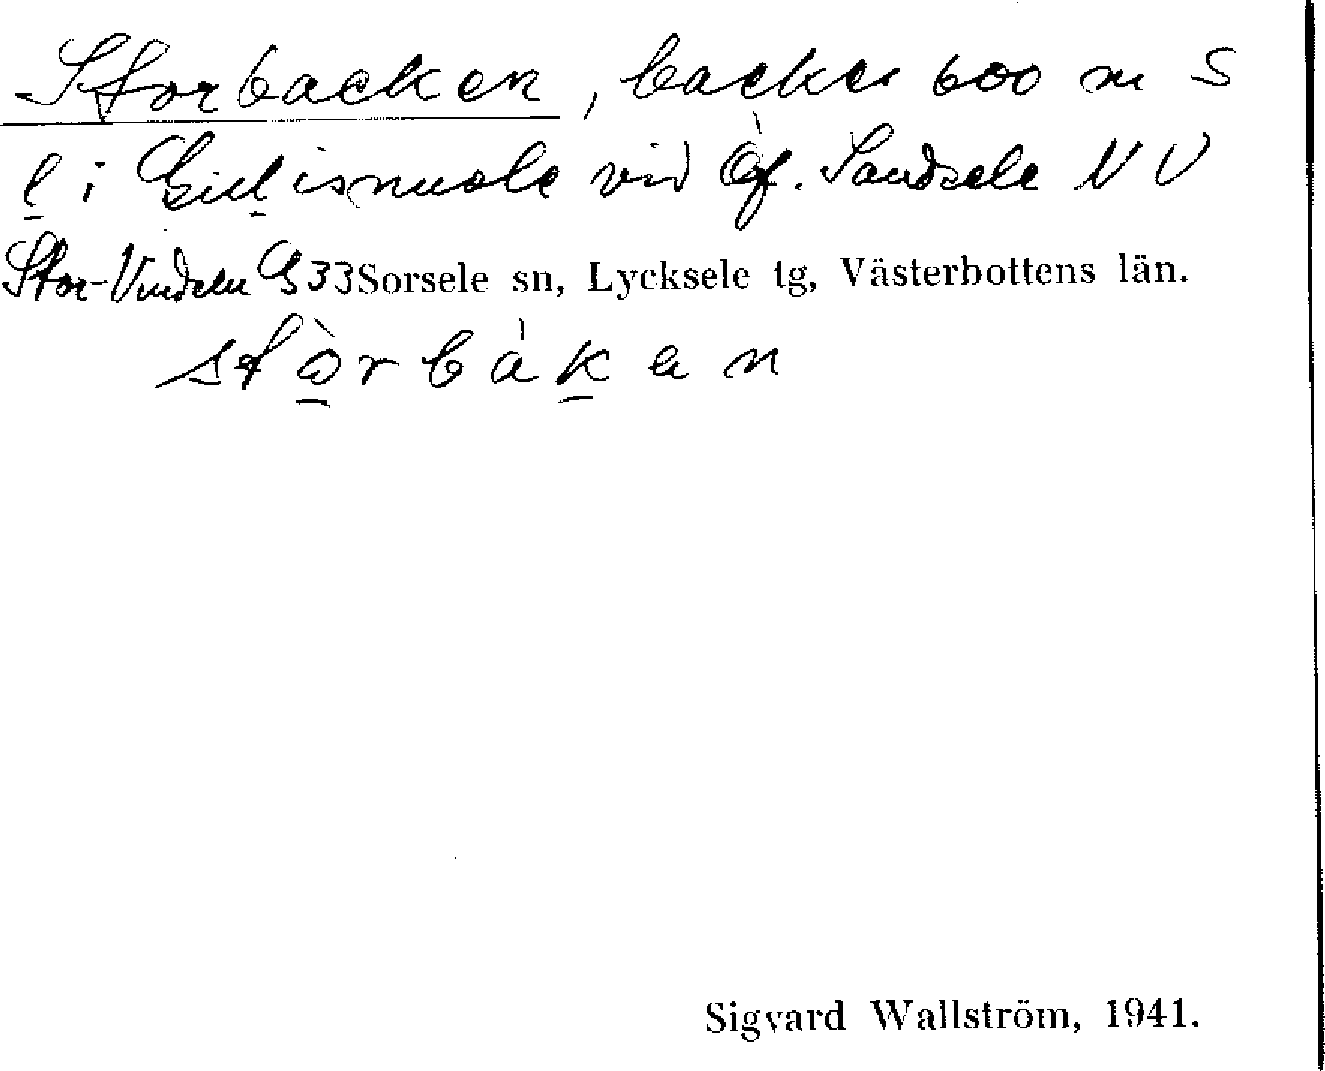 Storbacken, backe 600 m S
l i Gillisnuole vid Öf. Sandsele NV
Stor-Vindeln G 33 Sorsele sn, Lycksele tg, Västerbottens län.
stòrbàken
Sigvard Wallström, 1941.